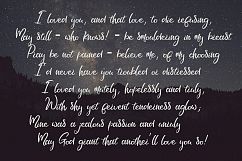 I loved you, and that love, to die refusing,
May still - who knows! - be smouldering in my breast
Pray be not pained - believe me, of my choosing
I'd never have you troubled or distressed
I loved you mutely, hopelessly and truly,
With shy yet fervent tenderness aglow;
Mine was a jealous passion and unruly
May God grant that another'll love you so!